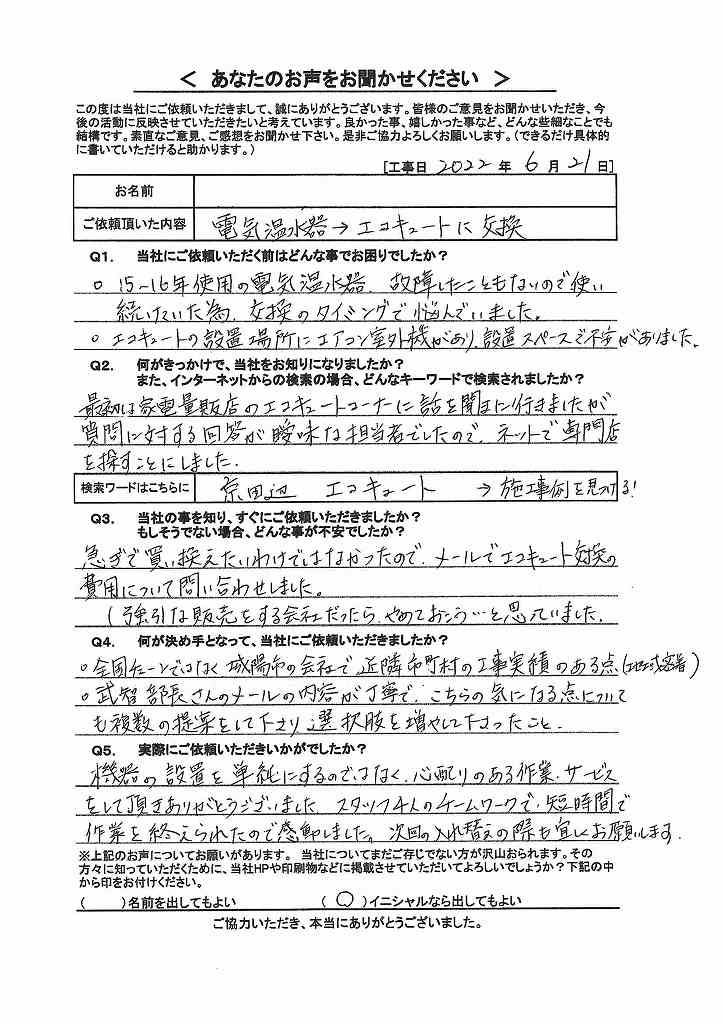 ＜ あなたのお声をお聞かせください ＞
この度は当社にご依頼いただきまして、誠にありがとうございます。皆様のご意見をお聞かせいただき、今
後の活動に反映させていただきたいと考えています。良かった事、嬉しかった事など、どんな些細なことでも
結構です。素直なご意見、ご感想をお聞かせ下さい。是非ご協力よろしくお願いします。（できるだけ具体的
に書いていただけると助かります。）
[工事日 2022 年 6 月 21 日]
お名前
ご依頼頂いた内容 電気温水器→エコキュートに交換
Q1. 当社にご依頼いただく前はどんな事でお困りでしたか？
○ 15～16年使用の電気温水器、故障したこともないので使い
続けていた為、交換のタイミングで悩んでいました。
○ エコキュートの設置場所にエアコン室外機があり、設置スペースで不安がありました。
Q2. 何がきっかけで、当社をお知りになりましたか？
また、インターネットからの検索の場合、どんなキーワードで検索されましたか？
最初は家電量販店のエコキュートコーナーに話を聞きに行きましたが
質問に対する回答が曖昧な担当者でしたので、ネットで専門店
を探すことにしました。
検索ワードはこちらに 京田辺 エコキュート → 施工事例を見つける！
Q3. 当社の事を知り、すぐにご依頼いただきましたか？
もしそうでない場合、どんな事が不安でしたか？
急ぎで買い換えたいわけではなかったので、メールでエコキュート交換の
費用について問い合わせしました。
（強引な販売をする会社だったら、やめておこう…と思っていました。
Q4. 何が決め手となって、当社にご依頼いただきましたか？
○全国チェーンではなく城陽市の会社で近隣市町村の工事実績のある点（地域密着）
○武智部長さんのメールの内容が丁寧で、こちらの気になる点について
も複数の提案をして下さり選択肢を増やして下さったこと。
Q5. 実際にご依頼いただきいかがでしたか？
機器の設置を単純にするのではなく、心配りのある作業・サービス
をして頂きありがとうございました。スタッフ4人のチームワークで、短時間で
作業を終えられたので感動しました。次回の入れ替えの際も宜しくお願いします。
※上記のお声についてお願いがあります。 当社についてまだご存じでない方が沢山おられます。その
方々に知っていただくために、当社HPや印刷物などに掲載させていただいてよろしいでしょうか？下記の中
から印をお付けください。
（ ）名前を出してもよい （ ○ ）イニシャルなら出してもよい
ご協力いただき、本当にありがとうございました。